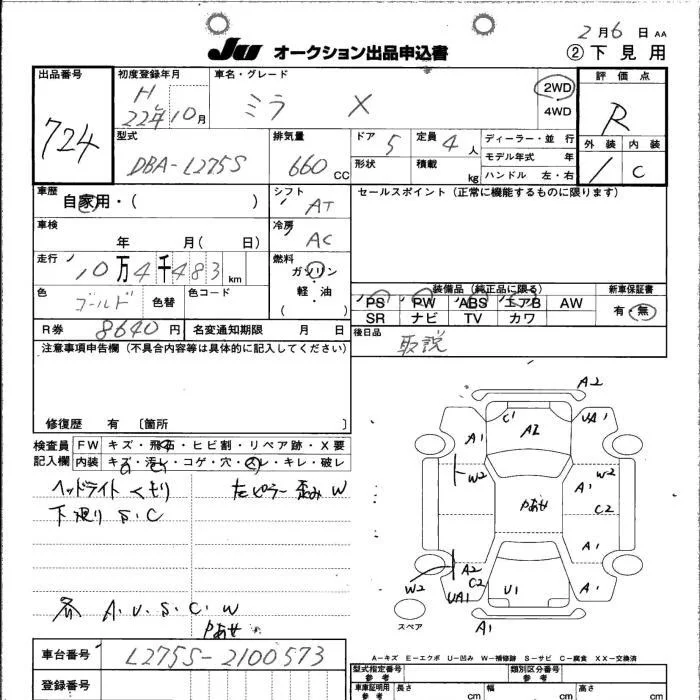 2月6日 AA
JU オークション出品申込書
② 下見用
出品番号
724
初度登録年月
H
22年10月
車名・グレード
ミラ X
2WD
4WD
評価点
R
外装 内装
C
型式
DBA-L275S
排気量
660 CC
ドア 5
形状
定員 4 人
積載 kg
ディーラー・並行
モデル年式 年
ハンドル 左・右
車歴
自家用・( )
シフト
AT
セールスポイント(正常に機能するものに限ります)
車検
年 月( 日)
冷房
AC
走行
10万4千483 km
燃料
ガソリン
軽・油
( )
色
ゴールド
色替
色コード
装備品(純正品に限る)
PS PW ABS エアB AW
SR ナビ TV カワ
新車保証書
有・無
R券 8640円
名変通知期限 月 日
後日品
取説
注意事項申告欄(不具合内容等は具体的に記入してください)
修復歴 有 〔箇所 〕
検査員
記入欄
FW キズ・飛石・ヒビ割・リペア跡・X要
内装 キズ・汚レ・コゲ・穴・スレ・キレ・破レ
ヘッドライトくもり
下廻り S.C
ピラー歪み W
各 A.U.S.C.W
Pあせ
A2
C1
A1
UA1
A1
A1
W2
A1
W2
C2
Pあせ
A1
A2
C2
W2
UA1
U1
A1
A1
スペア
A-キズ E-エクボ U-凹み W-補修跡 S-サビ C-腐食 XX-交換済
車台番号
L275S-2100573
登録番号
型式指定番号
参考
類別区分番号
参考
車庫証明用
参考
長さ cm
幅 cm
高さ cm